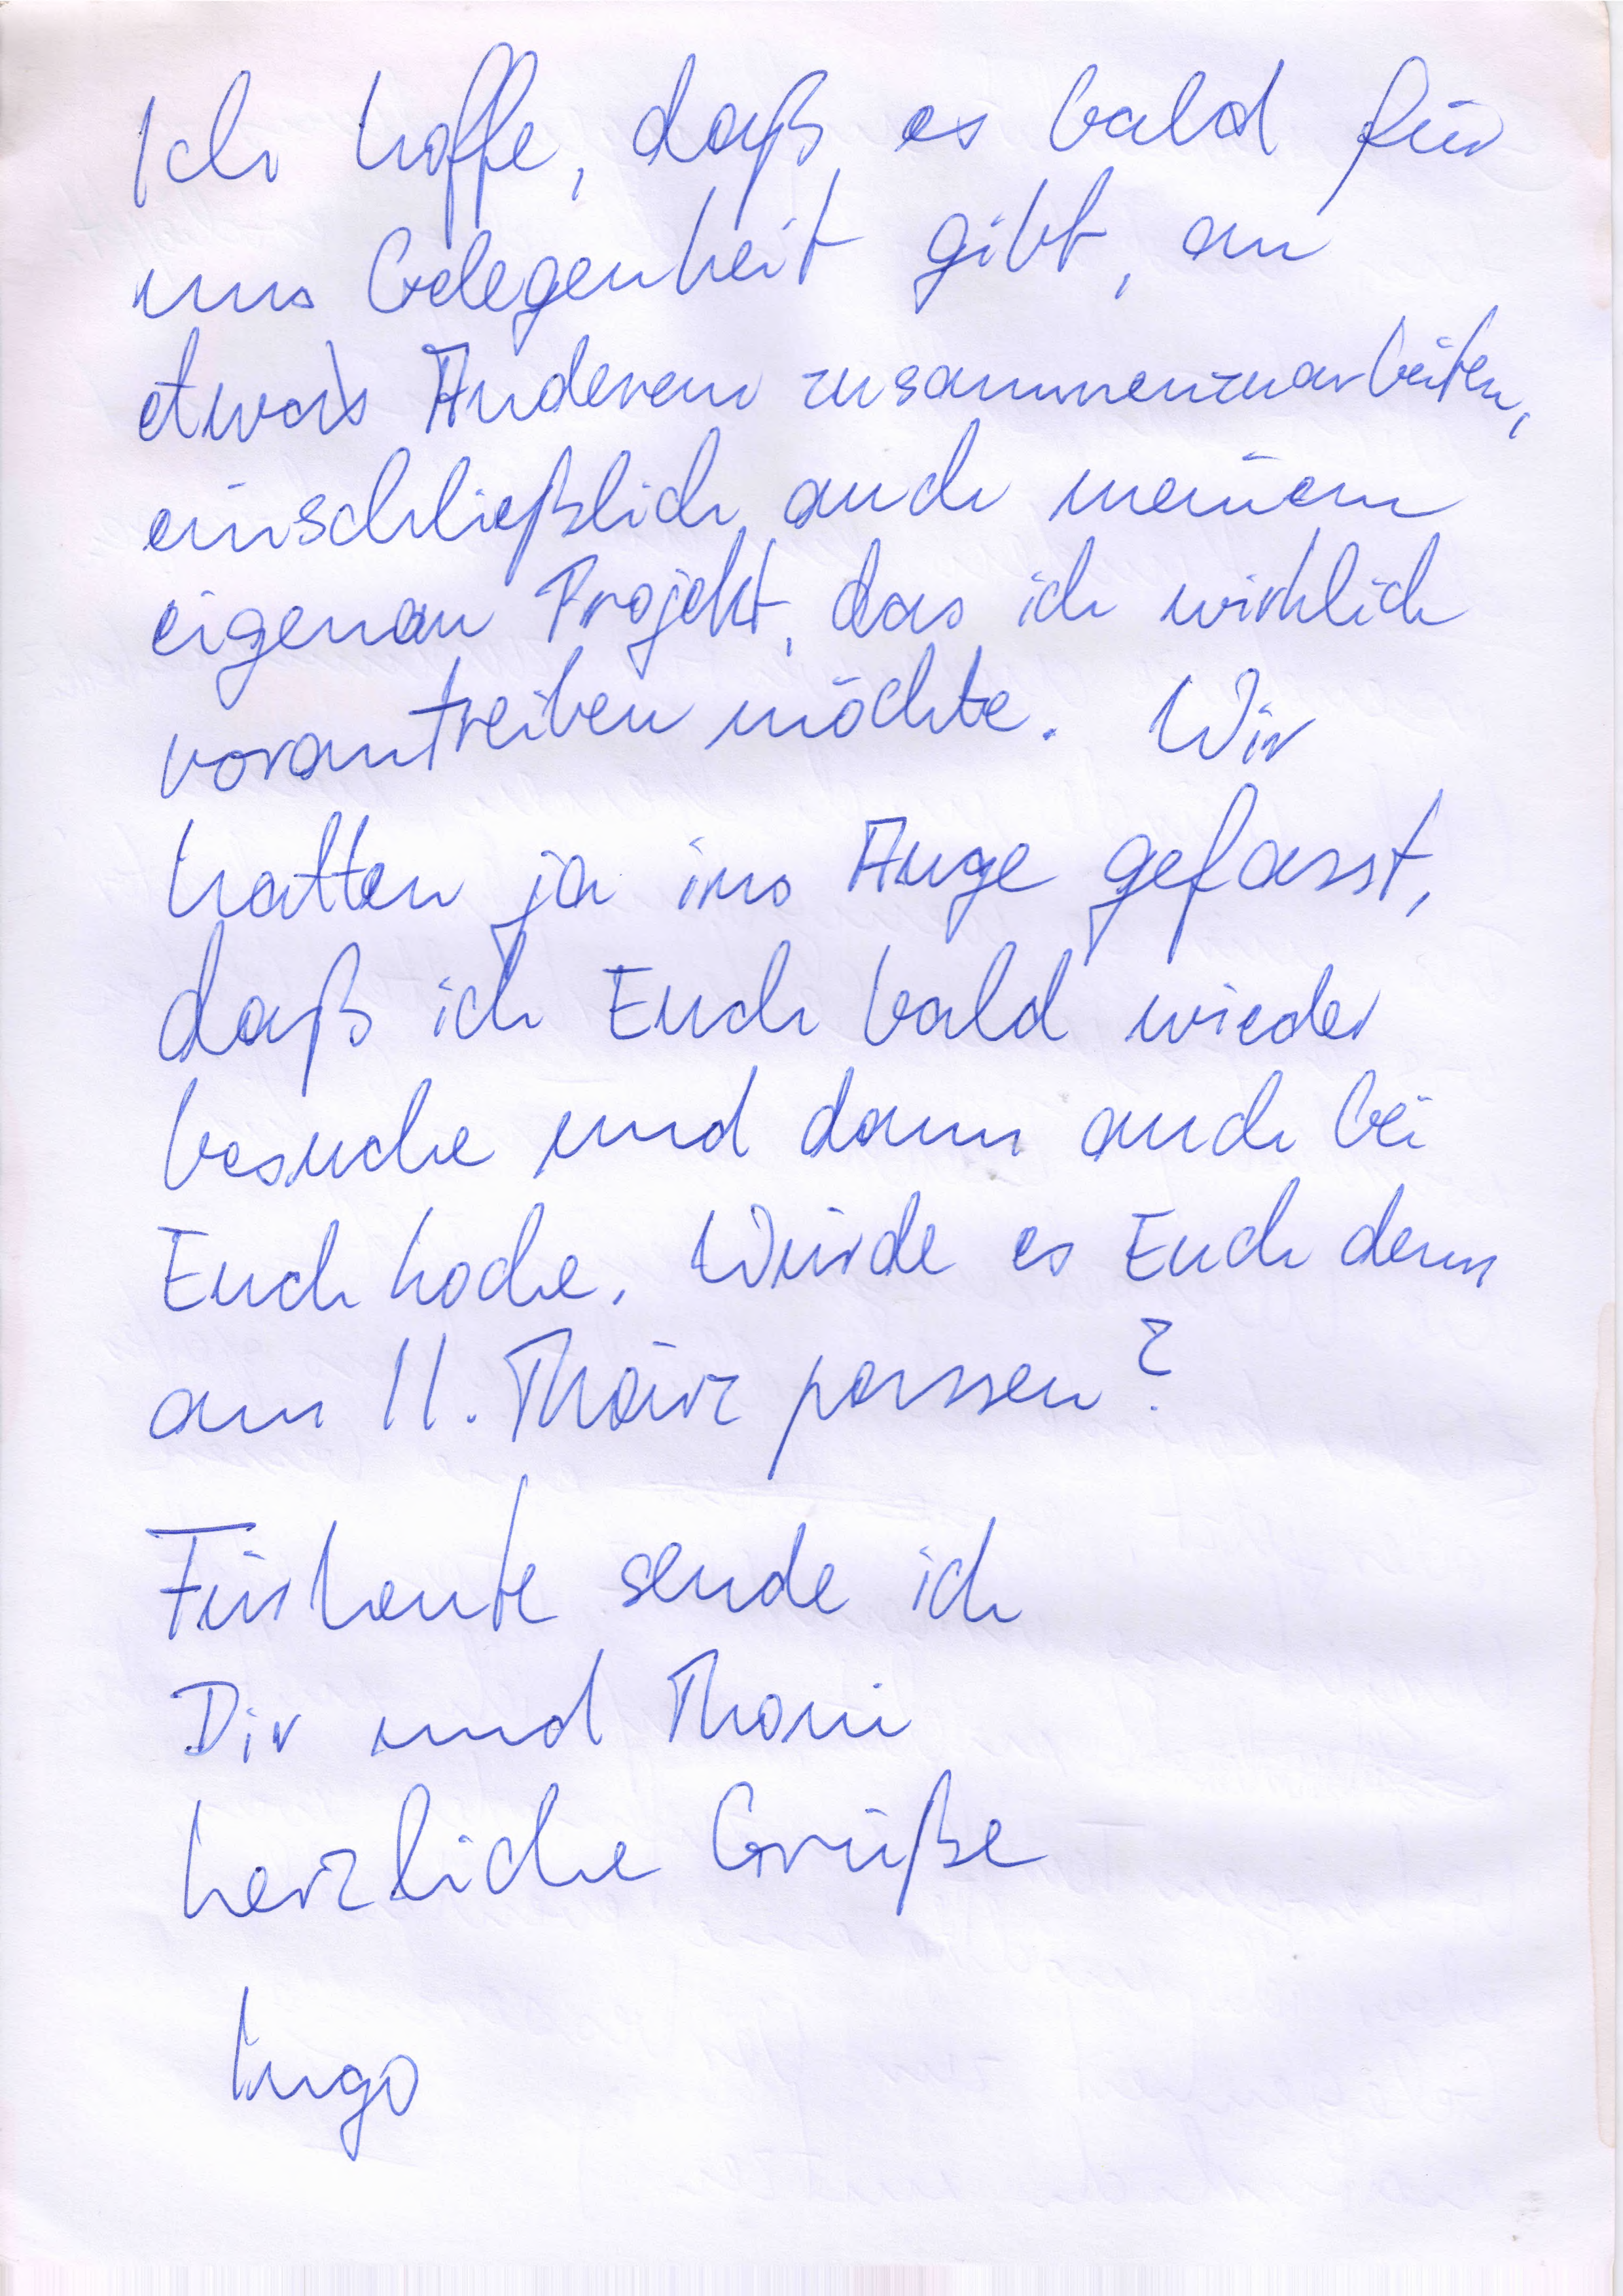 Ich hoffe, daß es bald für
uns Gelegenheit gibt, an
etwas Anderem zusammenzuarbeiten,
einschließlich auch meinem
eigenen Projekt, das ich wirklich
vorantreiben möchte. Wir
hatten ja ins Auge gefasst,
daß ich Euch bald wieder
besuche und dann auch bei
Euch koche. Würde es Euch denn
am 11. März passen?
Für heute sende ich
Dir und
herzliche Grüße